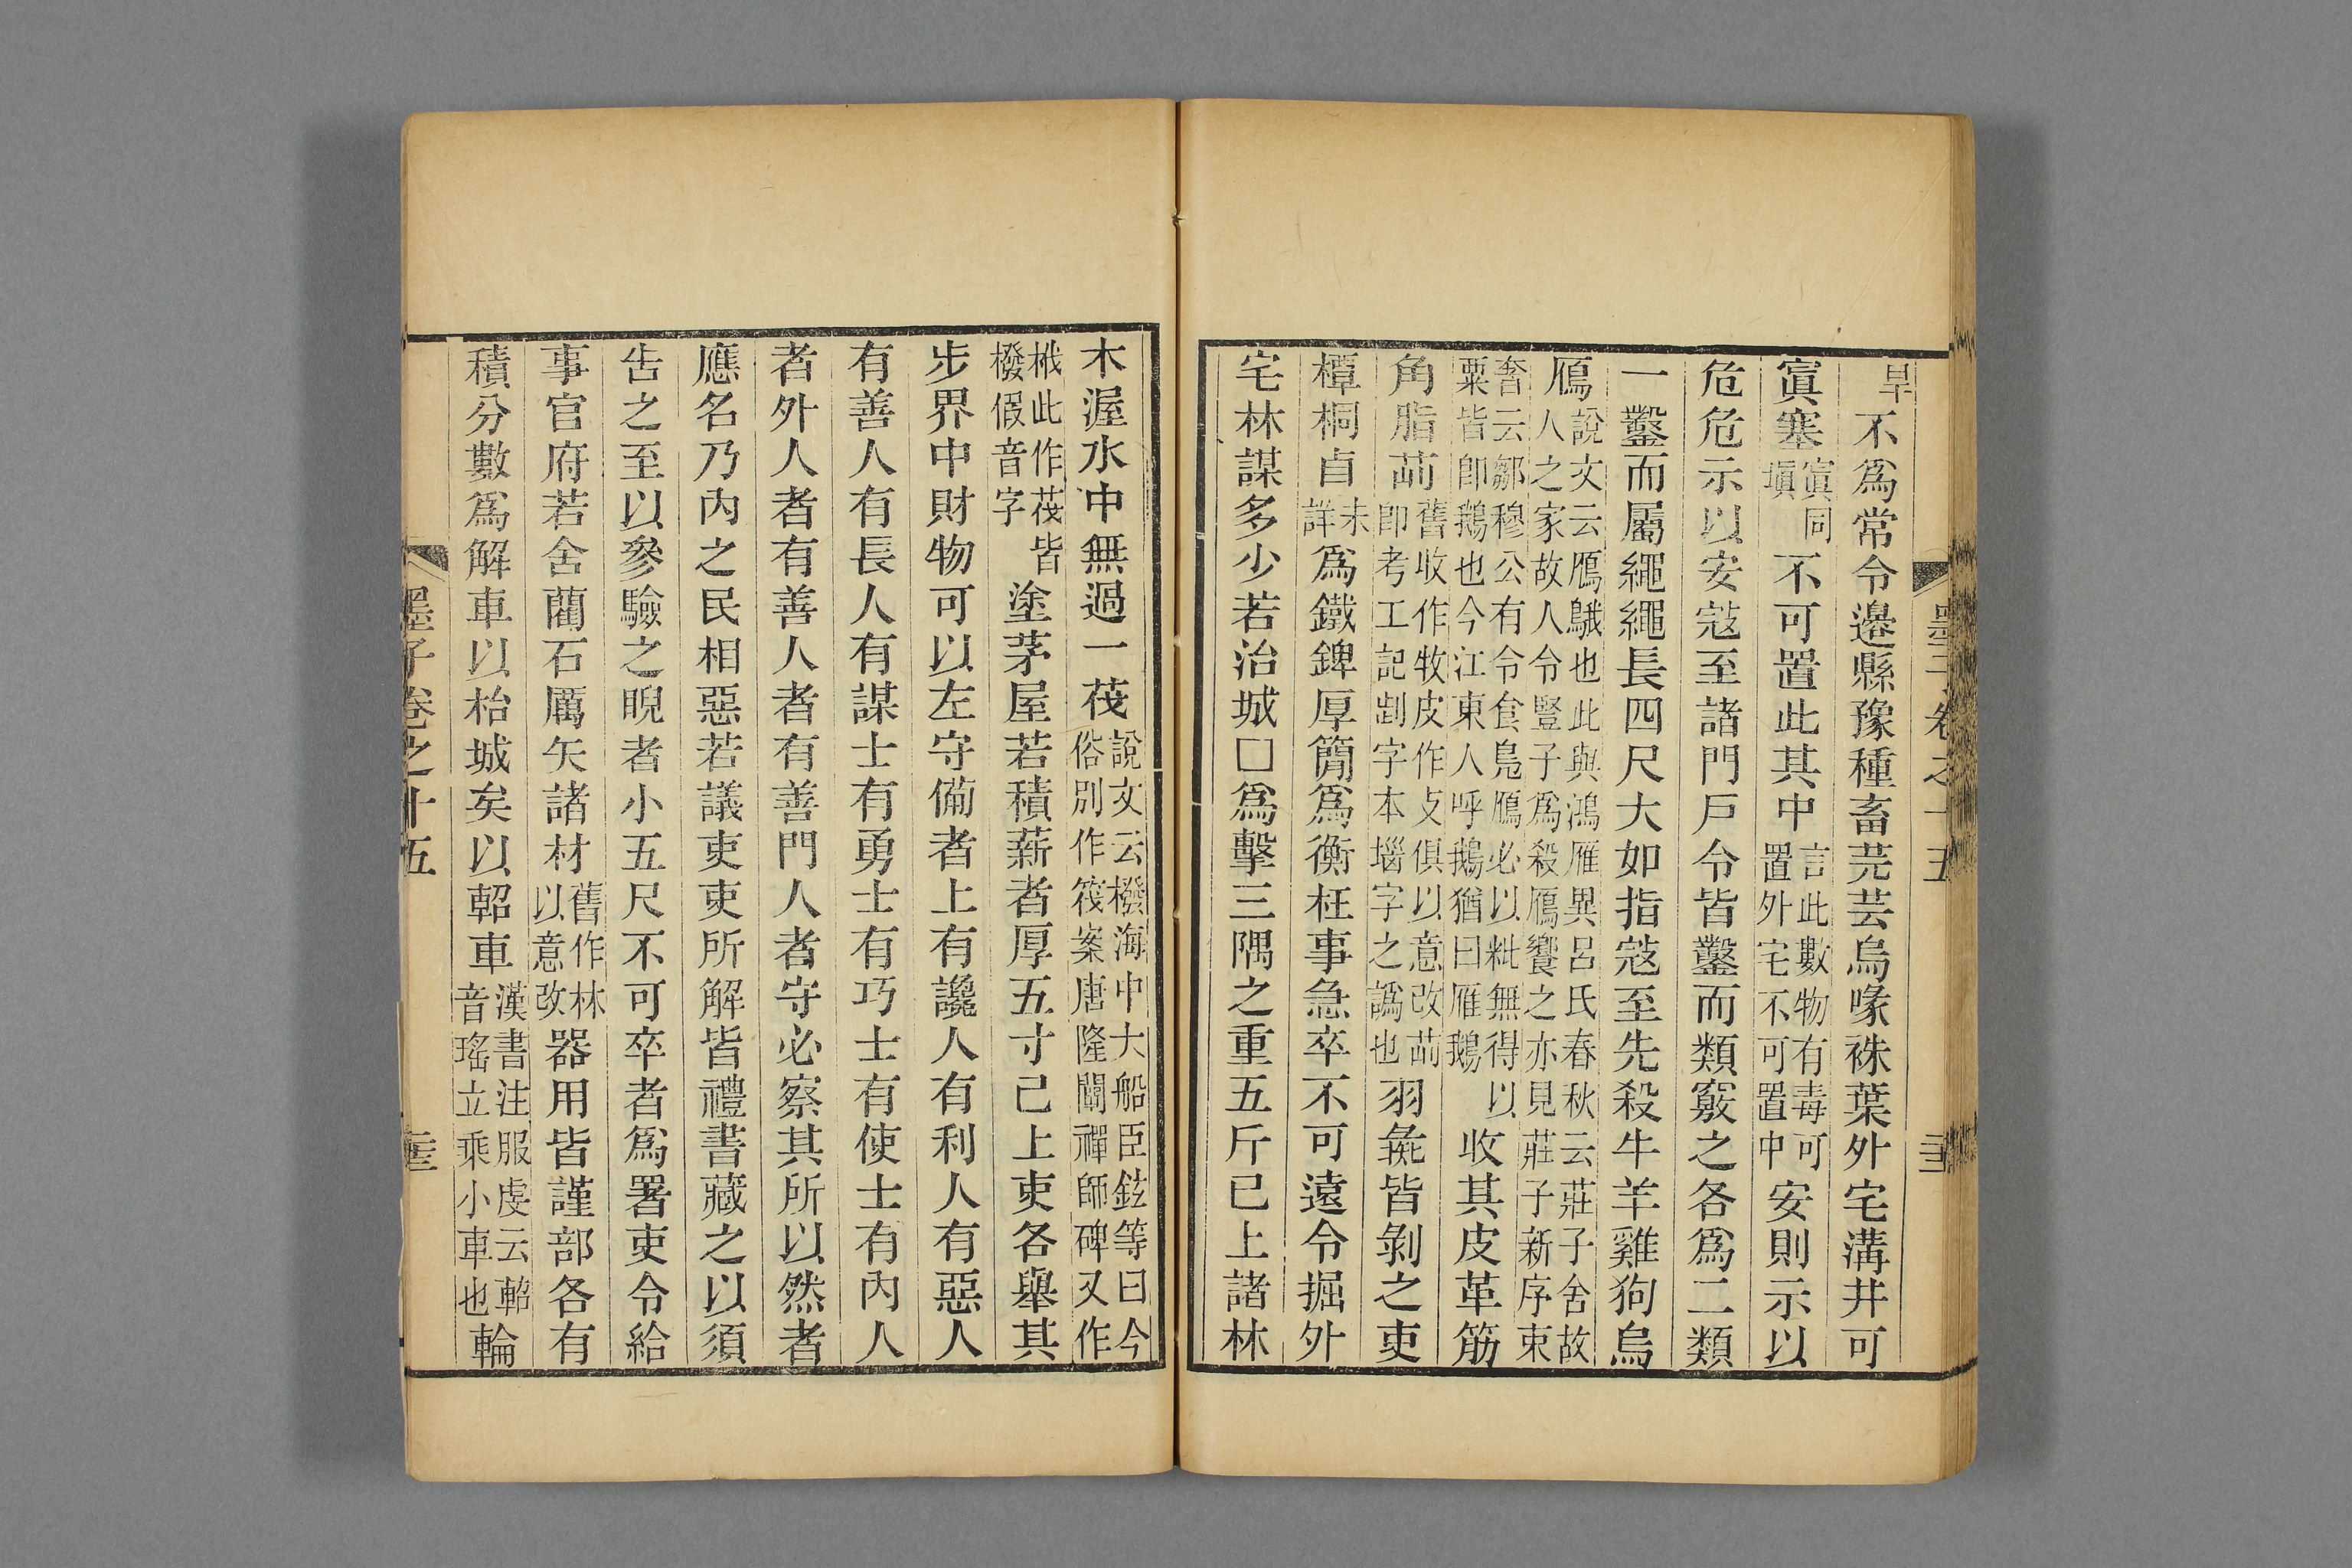 墨子卷之十五
早不爲常令邊縣豫種畜芫芸烏喙袾葉外宅溝井可
窴塞窴同塡不可置此其中言此數物有毒可置外宅不可置中安則示以
危危示以安寇至諸門戶令皆鑿而類竅之各爲二類
一鑿而屬繩繩長四尺大如指寇至先殺牛羊雞狗烏
鴈說文云鴈鵝也此與鴻雁異呂氏春秋云莊子舍故人之家故人令豎子爲殺鴈饗之亦見莊子新序束
奢云鄒穆公有令食鳧鴈必以粃無得以粟皆卽鵝也今江東人呼鵝猶曰雁鵝收其皮革筋
角脂䓊舊收作牧皮作攴俱以意改䓊卽考工記㓹字本𡺲字之譌也羽彘皆剝之吏
橝桐𣅀未詳爲鐵錍厚簡爲衡枉事急卒不可遠令掘外
宅林謀多少若治城□爲擊三隅之重五斤已上諸林
木渥水中無過一茷說文云橃海中大船臣鉉等曰今俗別作筏案唐隆闡禪師碑又作
栰此作茷皆橃假音字塗茅屋若積薪者厚五寸已上吏各舉其
步界中財物可以左守備者上有讒人有利人有惡人
有善人有長人有謀士有勇士有巧士有使士有內人
者外人者有善人者有善門人者守必察其所以然者
應名乃內之民相惡若議吏吏所解皆禮書藏之以須
告之至以參驗之睨者小五尺不可卒者爲署吏令給
事官府若舍藺石厲矢諸材舊作林以意改器用皆謹部各有
積分數爲解車以枱城矣以軺車漢書注服虔云軺音瑤立乘小車也輪
墨子卷之十五